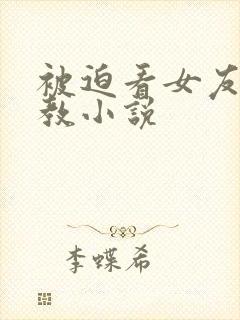 被迫看女友
教小说
李蝶希